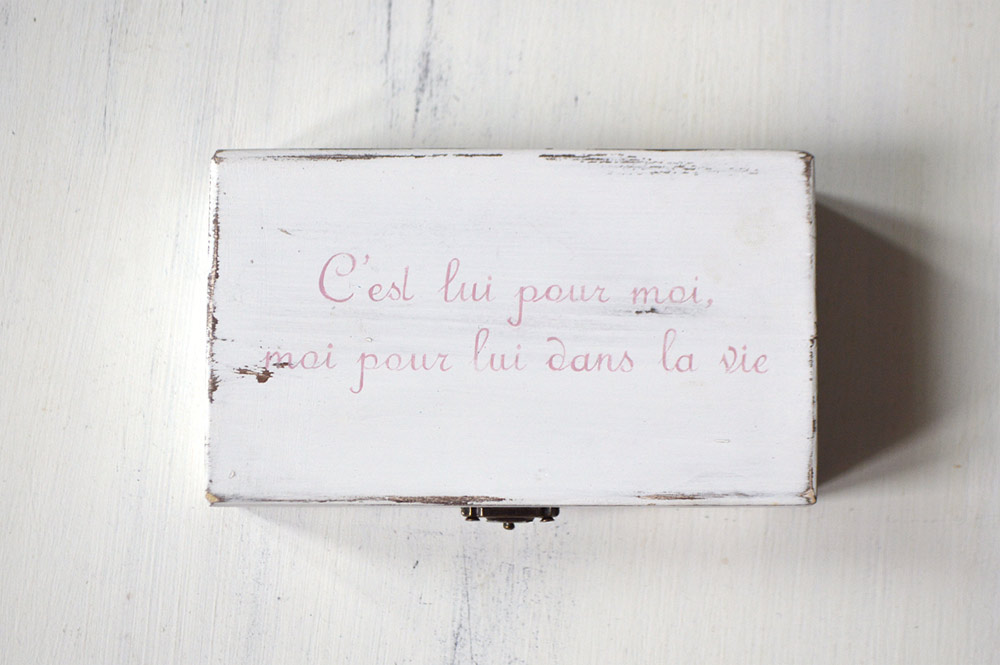 C'est lui pour moi,
moi pour lui dans la vie